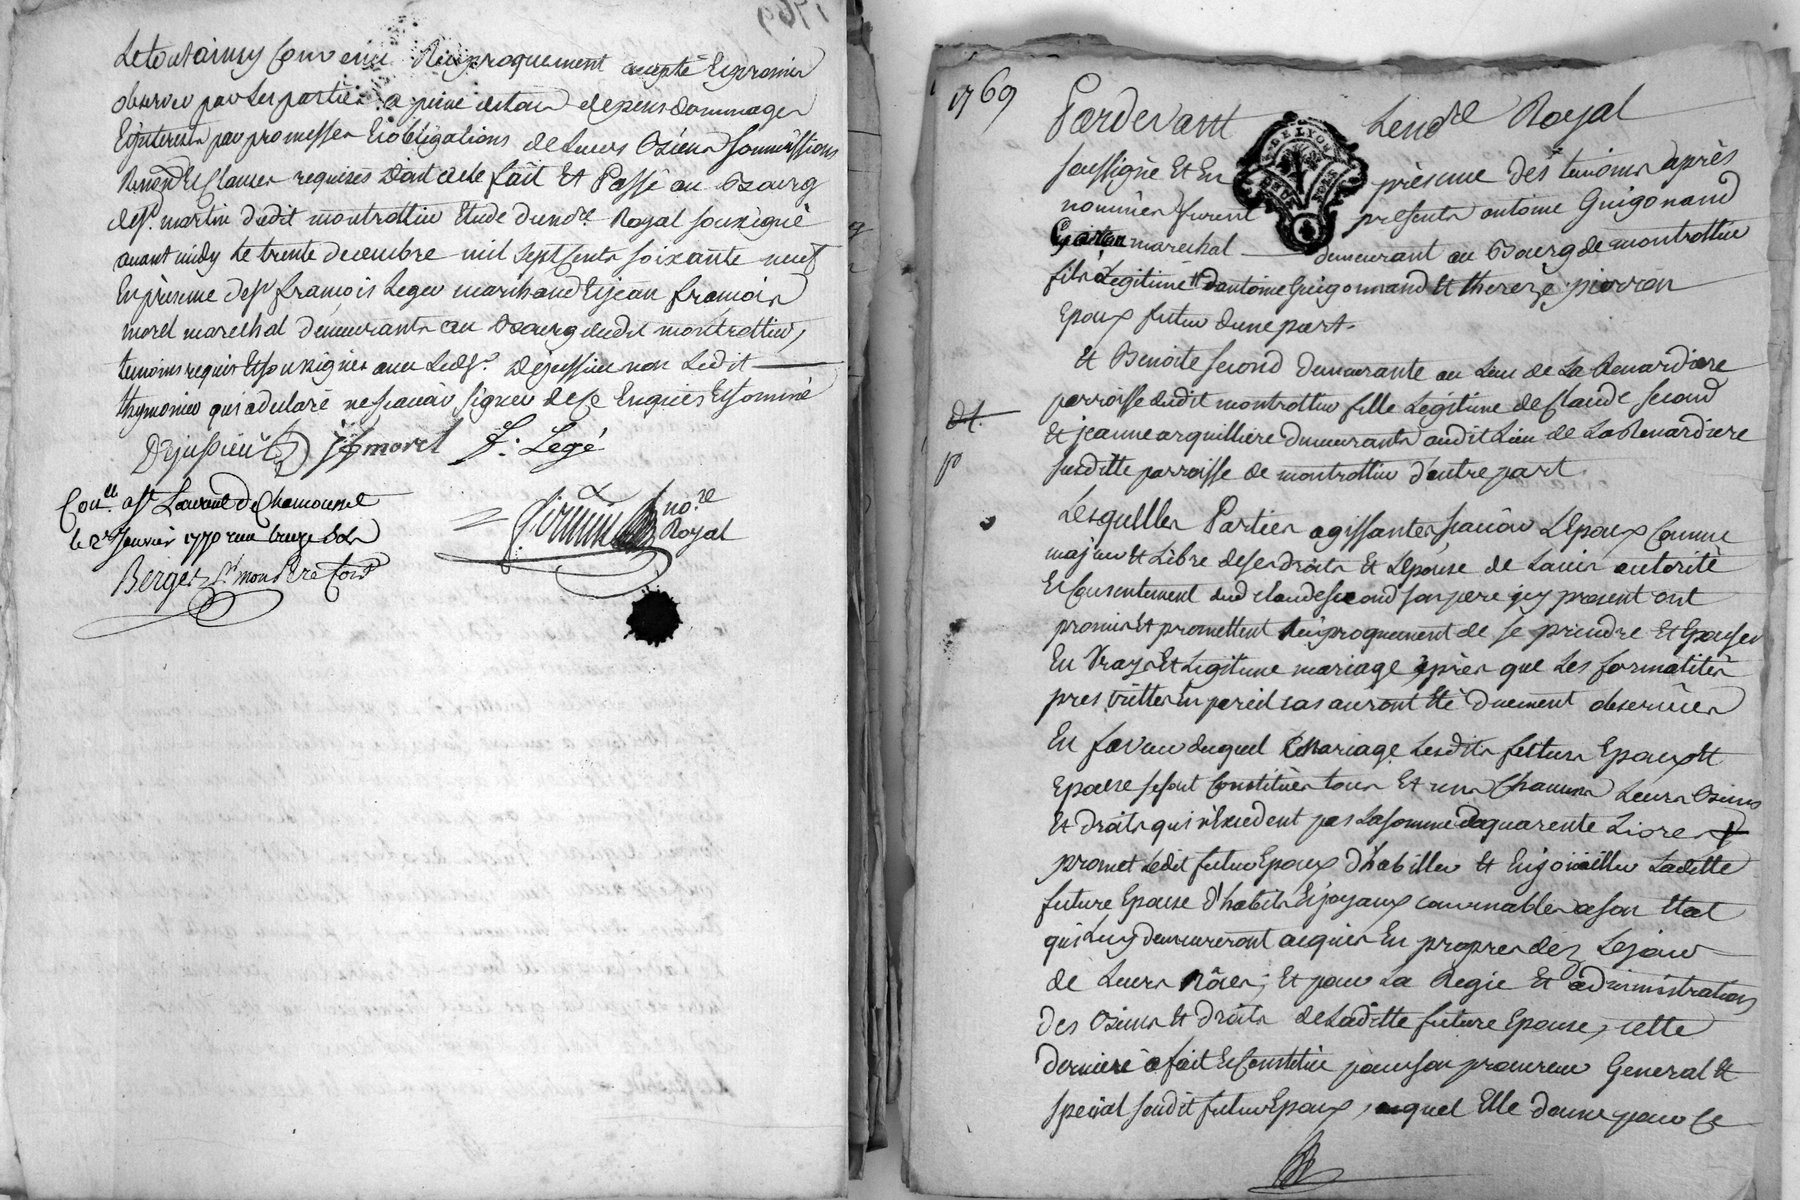 Le tout ainsy Convenu Reciproquement accepté Et promis
observer par Les parties a peine de tous depens dommages
Et jnterests par promesses Et obligations de Leurs Biens soumissions
Renond Et Clauses requises Dont acte fait Et Passé au Bourg
de St martin dudit montrottier Etude dudt no.re Royal soussigné
avant midy Le trente decembre mil sept Cents soixante neuf
En présence de sr françois Leger marchand Et jean françois
morel marechal demeurants au Bourg dudit montrottier,
temoins requis Et soussignés avec Led. sr Dejussieu non Ledit
thymonier qui a declaré ne sçavoir signer de Ce Enquis Et sommé
Dejussieu jf morel f. Legé
Con.lle a St Laurent De Chamousset
le 2e Janvier 1770 reçu treize sols
Berger
no.re
Royal
1769
Pardevant Le no.re Royal
soussigné Et En présence des temoins après
nommés furent présents antoine Guigonand
marechal demeurant au Bourg de montrottier
fils Légitime d'antoine Guigonnand Et thereze pierron
Epoux futur d'une part.
Et Benoite second demeurante au Lieu de La Renardiere
parroisse dudit montrottier fille Légitime de Claude second
Et jeanne arquilliere demeurants audit Lieu de La Renardiere
susditte parroisse de montrottier d'autre part.
Lesquelles Parties agissantes sçavoir L'Epoux Comme
majeur Et Libre de ses droits Et L'Epouse de L'avis autorité
Et Consentement dud Claude second son pere jcy present ont
promis Et promettent Reciproquement de se prendre Et Epouser
En Vray Et Legitime mariage après que Les formalités
prescrittes En pareil cas auront Eté duement observées
En faveur duquel mariage Lesdits futurs Epoux Et
Epouse se sont Constitués tous Et uns Chacuns Leurs Biens
Et droits qui n'Excedent pas La somme de quarente Livres
promet Ledit futur Epoux d'habiller Et Enjoüailler Laditte
future Epouse d'habits Et joyaux convenables a son Etat
qui Luy demeureront acquis En propres dez Le jour
de Leurs nôces; Et pour La Regie Et administration
des Biens Et droits de Laditte future Epouse, cette
derniere a fait Et Constitué pour son procureur General Et
special sondit futur Epoux, auquel Elle donne pour Ce